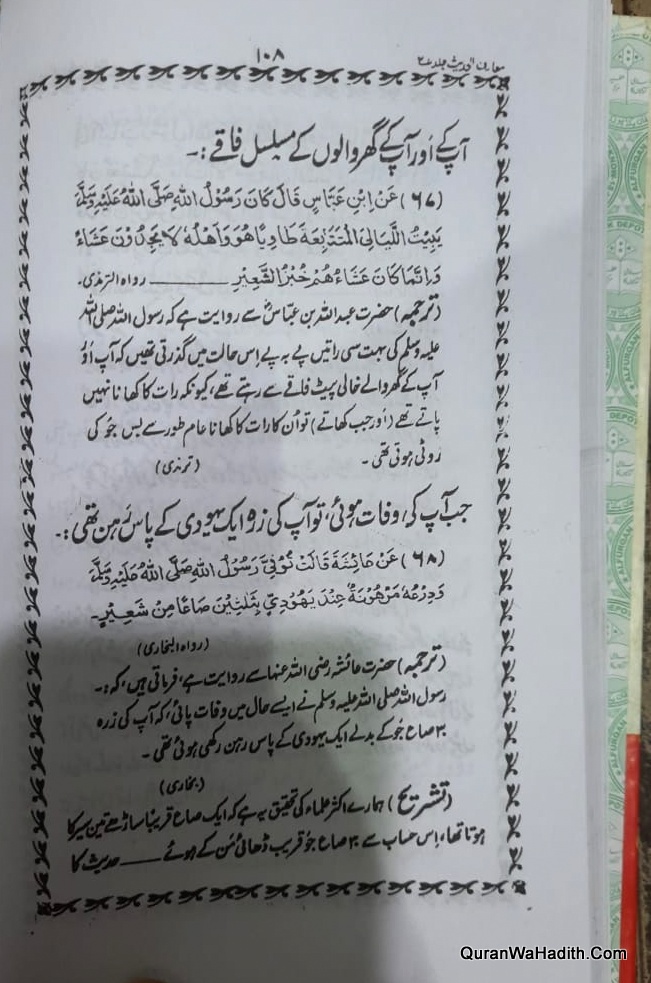 معارف الحدیث جلد ۲
۱۰۸
آپ کے اور آپ کے گھر والوں کے مسلسل فاقے :۔
(۶۷) عَنْ اِبْنِ عَبَّاسٍ قَالَ كَانَ رَسُوْلُ اللّٰهِ صَلَّى اللّٰهُ عَلَيْهِ وَسَلَّمَ
يَبِيْتُ اللَّيَالِيَ الْمُتَتَابِعَةَ طَاوِيًا هُوَ وَاَهْلُهٗ لَا يَجِدُوْنَ عَشَاءً
وَاِنَّمَا كَانَ عَشَاءُهُمْ خُبْزُ الشَّعِيْرِ ــــــــ رواه الترمذی۔
(ترجمہ) حضرت عبداللہ بن عباسؓ سے روایت ہے کہ رسول اللہ صلی اللہ
علیہ وسلم کی بہت سی راتیں پے بہ پے اس حالت میں گذرتی تھیں کہ آپ اور
آپ کے گھر والے خالی پیٹ فاقے سے رہتے تھے، کیونکہ رات کا کھانا نہیں
پاتے تھے (اور جب کھاتے) تو اُن کا رات کا کھانا عام طور سے بس جَو کی
روٹی ہوتی تھی ۔ (ترمذی)
جب آپ کی وفات ہوئی، تو آپ کی زرہ ایک یہودی کے پاس رہن تھی :۔
(۶۸) عَنْ عَائِشَةَ قَالَتْ تُوُفِّيَ رَسُوْلُ اللّٰهِ صَلَّى اللّٰهُ عَلَيْهِ وَسَلَّمَ
وَدِرْعُهٗ مَرْهُوْنَةٌ عِنْدَ يَهُوْدِيٍّ بِثَلٰثِيْنَ صَاعًا مِنْ شَعِيْرٍ۔
(رواہ البخاری)
(ترجمہ) حضرت عائشہ رضی اللہ عنہا سے روایت ہے، فرماتی ہیں، کہ :۔
رسول اللہ صلی اللہ علیہ وسلم نے ایسے حال میں وفات پائی، کہ آپ کی زرہ
۳۰ صاع جَو کے بدلے ایک یہودی کے پاس رہن رکھی ہوئی تھی ۔
(بخاری)
(تشریح) ہمارے اکثر علماء کی تحقیق یہ ہے کہ ایک صاع قریباً ساڑھے تین سیر کا
ہوتا تھا، اس حساب سے ۳۰ صاع جَو قریب ڈھائی من کے ہوئے ـــــ حدیث کا
QuranWaHadith.Com